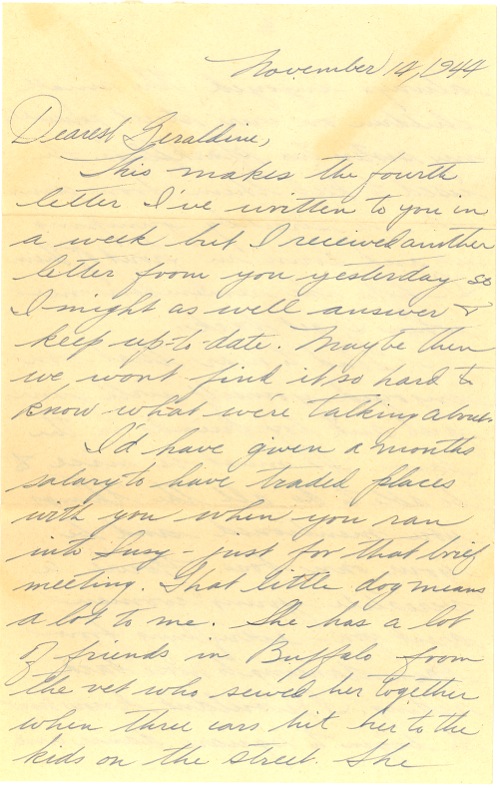 November 14, 1944
Dearest Geraldine,
This makes the fourth
letter I've written to you in
a week but I received another
letter from you yesterday so
I might as well answer &
keep up-to-date. Maybe then
we wont find it so hard to
know what we're talking about.
I'd have given a months
salary to have traded places
with you when you ran
into Susy - just for that brief
meeting. That little dog means
a lot to me. She has a lot
of friends in Buffalo from
the vet who sewed her together
when three cars hit her to the
kids on the street. She